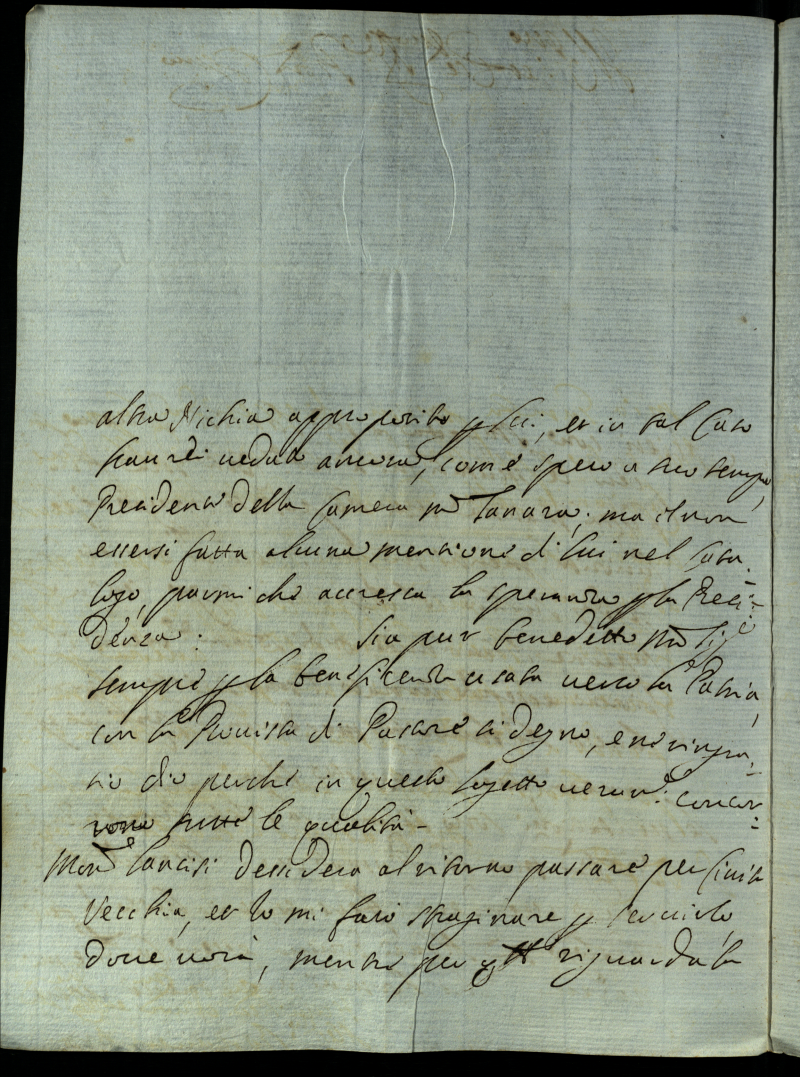 altra Nichia approposito p lui, et in tal Caso
haurei veduto ancora, come spero a suo tempo,
Presidente della Camera Mr Tanara; ma il non
essersi fatta alcuna mentione di lui nel
logo, parmi che accresca la speranza p la Presi=
denza. Sia pur benedetto
sempre p la beneficenza usata verso la Patria,
con la Provista di Pastore si degno, e ne ringra=
tio dio perche in questo sogetto veram.te concor=
rono tutte le qualità -
Mons.e Lancisi dessidera al ritorno passare per Civita
Vecchia, et Io mi farò strasinare p servirlo,
dove vorà, mentre per riguarda la